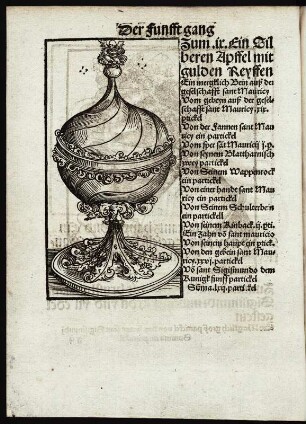 Der Funfft gang
Zum .ix. Ein Sil
beren Apffel mit
gulden Reyffen
Ein mercklich Bein auß der
geselschafft sant Mauricy
Vom gebeyn auß der gesel-
schafft sant Mauricy .xix.
ptickel
Von der Fannen sant Mau
ricy ein partickel
Vom sper sāt Mauricij j. p.
Von seynem Blattharnisch
partickel
Von Seinem Wappenrock
ein partickel
Von einer handt sant Mau
ricy ein partickel
Von Seinem Schulterbein
ein partickell
Von seinem Kinback
Ein zahn vō sant mauricio
Von seinem haupt ein ptick.
Von den gebein sant Mau
ricy .xxvj. partickel
Vō sant Sigismundo dem
Kunigk funff partickel
Sūma .lxij. partickel